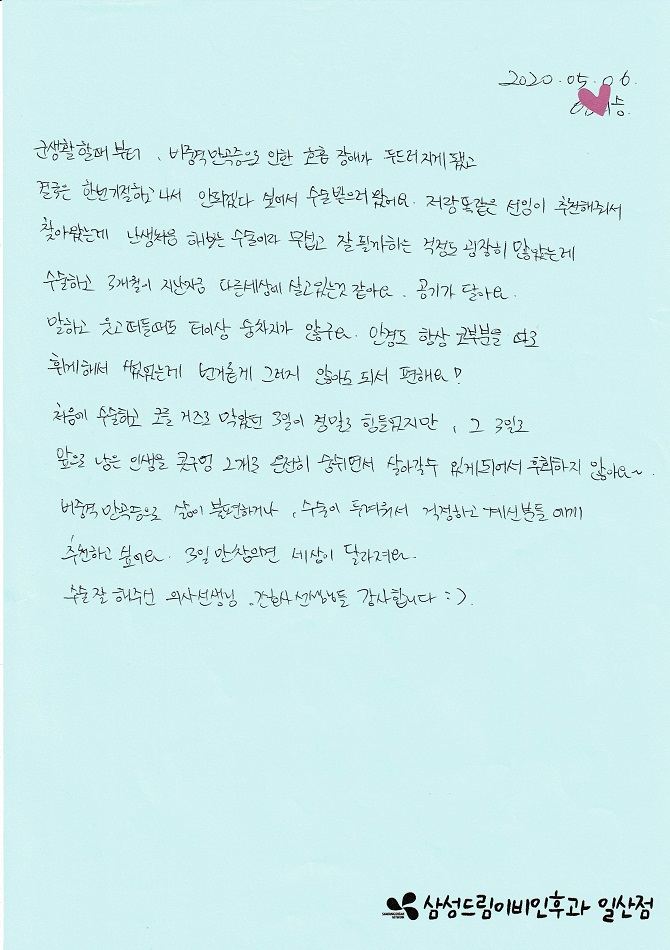 2020.05.06.
승.
군생활할때부터, 비중격만곡증으로 인한 호흡 장애가 두드러지게 됐고
결국은 한번 기절하고 나서 안되겠다 싶어서 수술받으러 왔어요. 저랑 똑같은 선임이 추천해줘서
찾아왔는데 난생처음 해보는 수술이라 무섭고 잘 될까하는 걱정도 굉장히 많았는데
수술하고 3개월이 지난지금 다른세상에 살고있는것 같아요. 공기가 달아요.
말하고 웃고떠들때도 더이상 숨차지가 않구요. 안경도 항상 코부분을 따로
휘게해서 썼었는데 번거롭게 그러지 않아도 되서 편해요!
처음에 수술하고 코를 거즈로 막았던 3일이 정말로 힘들었지만, 그 3일로
앞으로 남은 인생을 콧구멍 2개로 온전히 숨쉬면서 살아갈수 있게되어서 후회하지 않아요~
비중격만곡증으로 삶이 불편하거나, 수술이 두려워서 걱정하고 계신분들에게
추천하고 싶어요. 3일만 참으면 세상이 달라져요.
수술 잘 해주신 의사선생님, 간호사 선생님들 감사합니다 :).
삼성드림이비인후과 일산점